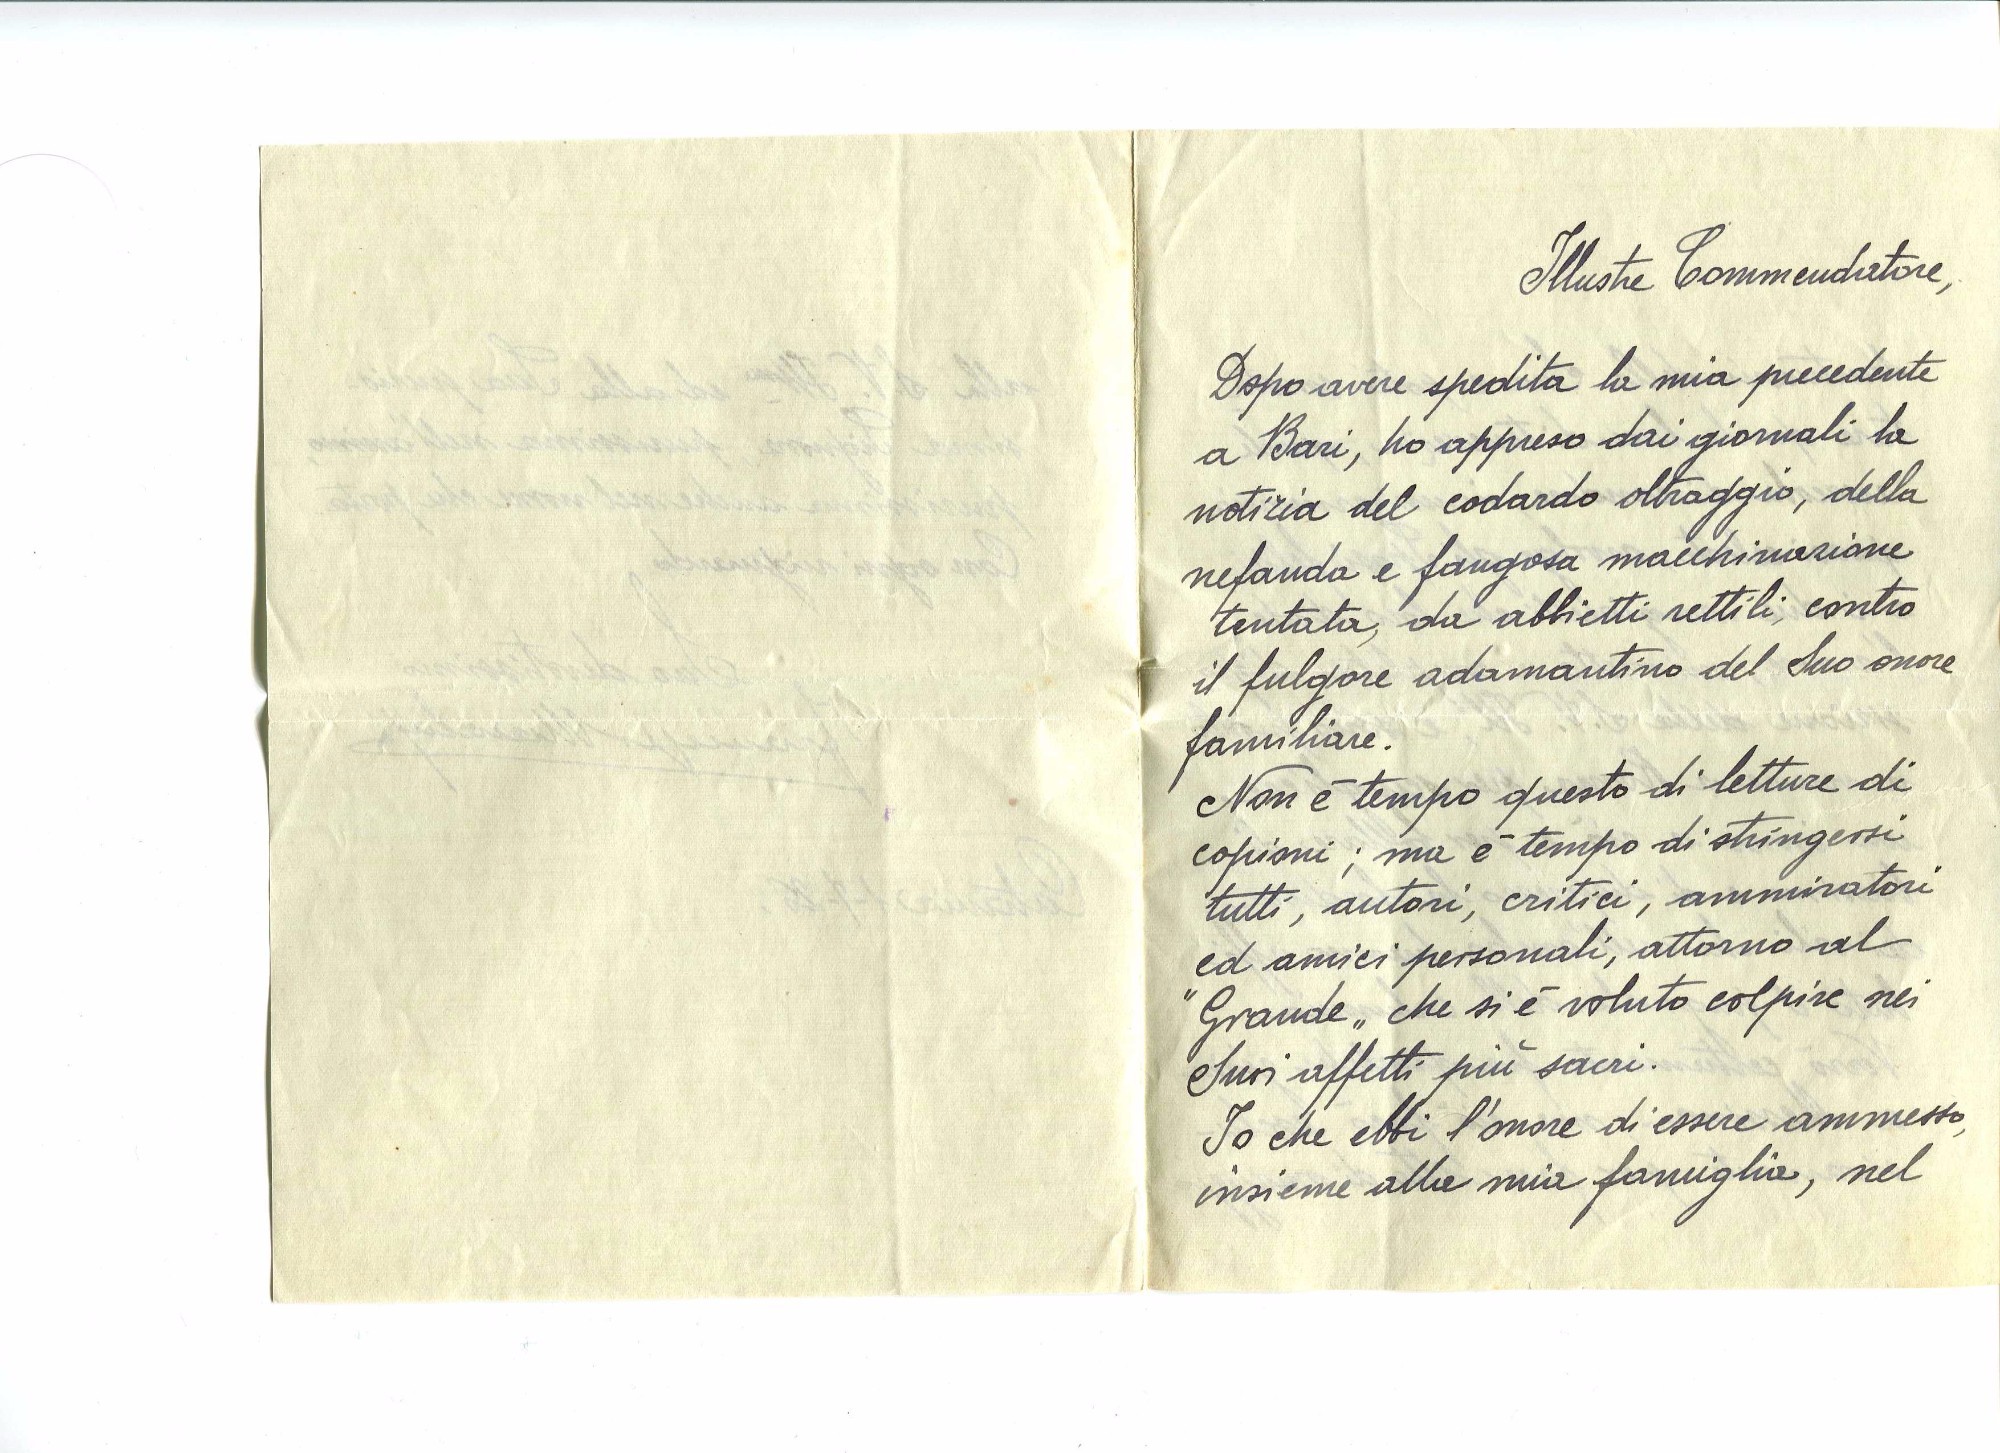 Illustre Commendatore,
Dopo avere spedita la mia precedente
a Bari, ho appreso dai giornali la
notizia del codardo oltraggio, della
nefanda e fangosa macchinazione
tentata, da abbietti rettili, contro
il fulgore adamantino del Suo onore
familiare.
Non è tempo questo di letture di
copioni; ma è tempo di stringersi
tutti, autori, critici, ammiratori
ed amici personali, attorno al
"Grande„ che si è voluto colpire nei
Suoi affetti più sacri.
Io che ebbi l'onore di essere ammesso,
insieme alla mia famiglia, nel